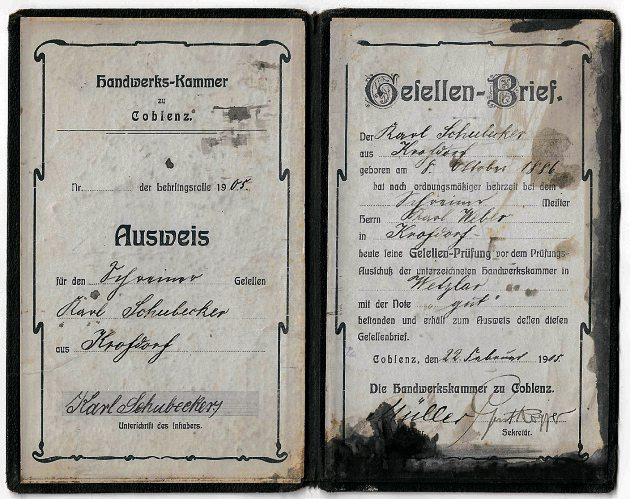 Handwerks-Kammer
zu
Coblenz.
Nr. der Lehrlingsrolle 1905.
Ausweis
für den Schreiner Gesellen
Karl Schubecker
aus Krofdorf
Karl Schubecker
Unterschrift des Inhabers.
Gesellen-Brief.
Der Karl Schubecker
aus Krofdorf
geboren am 8. Oktober 1886
hat nach ordnungsmäßiger Lehrzeit bei dem
Schreiner Meister
Herrn Karl Weber
in Krofdorf
heute seine Gesellen-Prüfung vor dem Prüfungs-
Ausschuß der unterzeichneten Handwerkskammer in
Wetzlar
mit der Note „gut“
bestanden und erhält zum Ausweis dessen diesen
Gesellenbrief.
Coblenz, den 22. Februar 1905
Die Handwerkskammer zu Coblenz.
Müller
Sekretär.